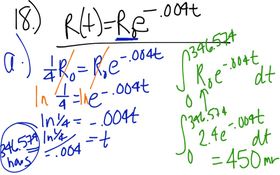 18.) R(t) = R₀e^-.004t
a.) 1/4 R₀ = R₀e^-.004t
ln 1/4 = ln e^-.004t
ln 1/4 = -.004t
ln 1/4 / -.004 = t
346.574
∫₀^346.574 R₀e^-.004t dt
∫₀^346.574 2.4e^-.004t dt
= 450